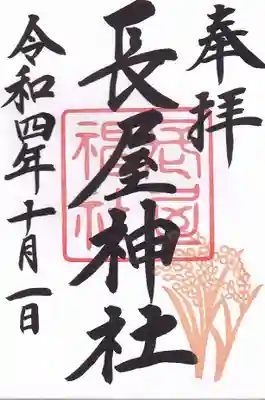 奉拝
長屋神社
令和四年十月一日